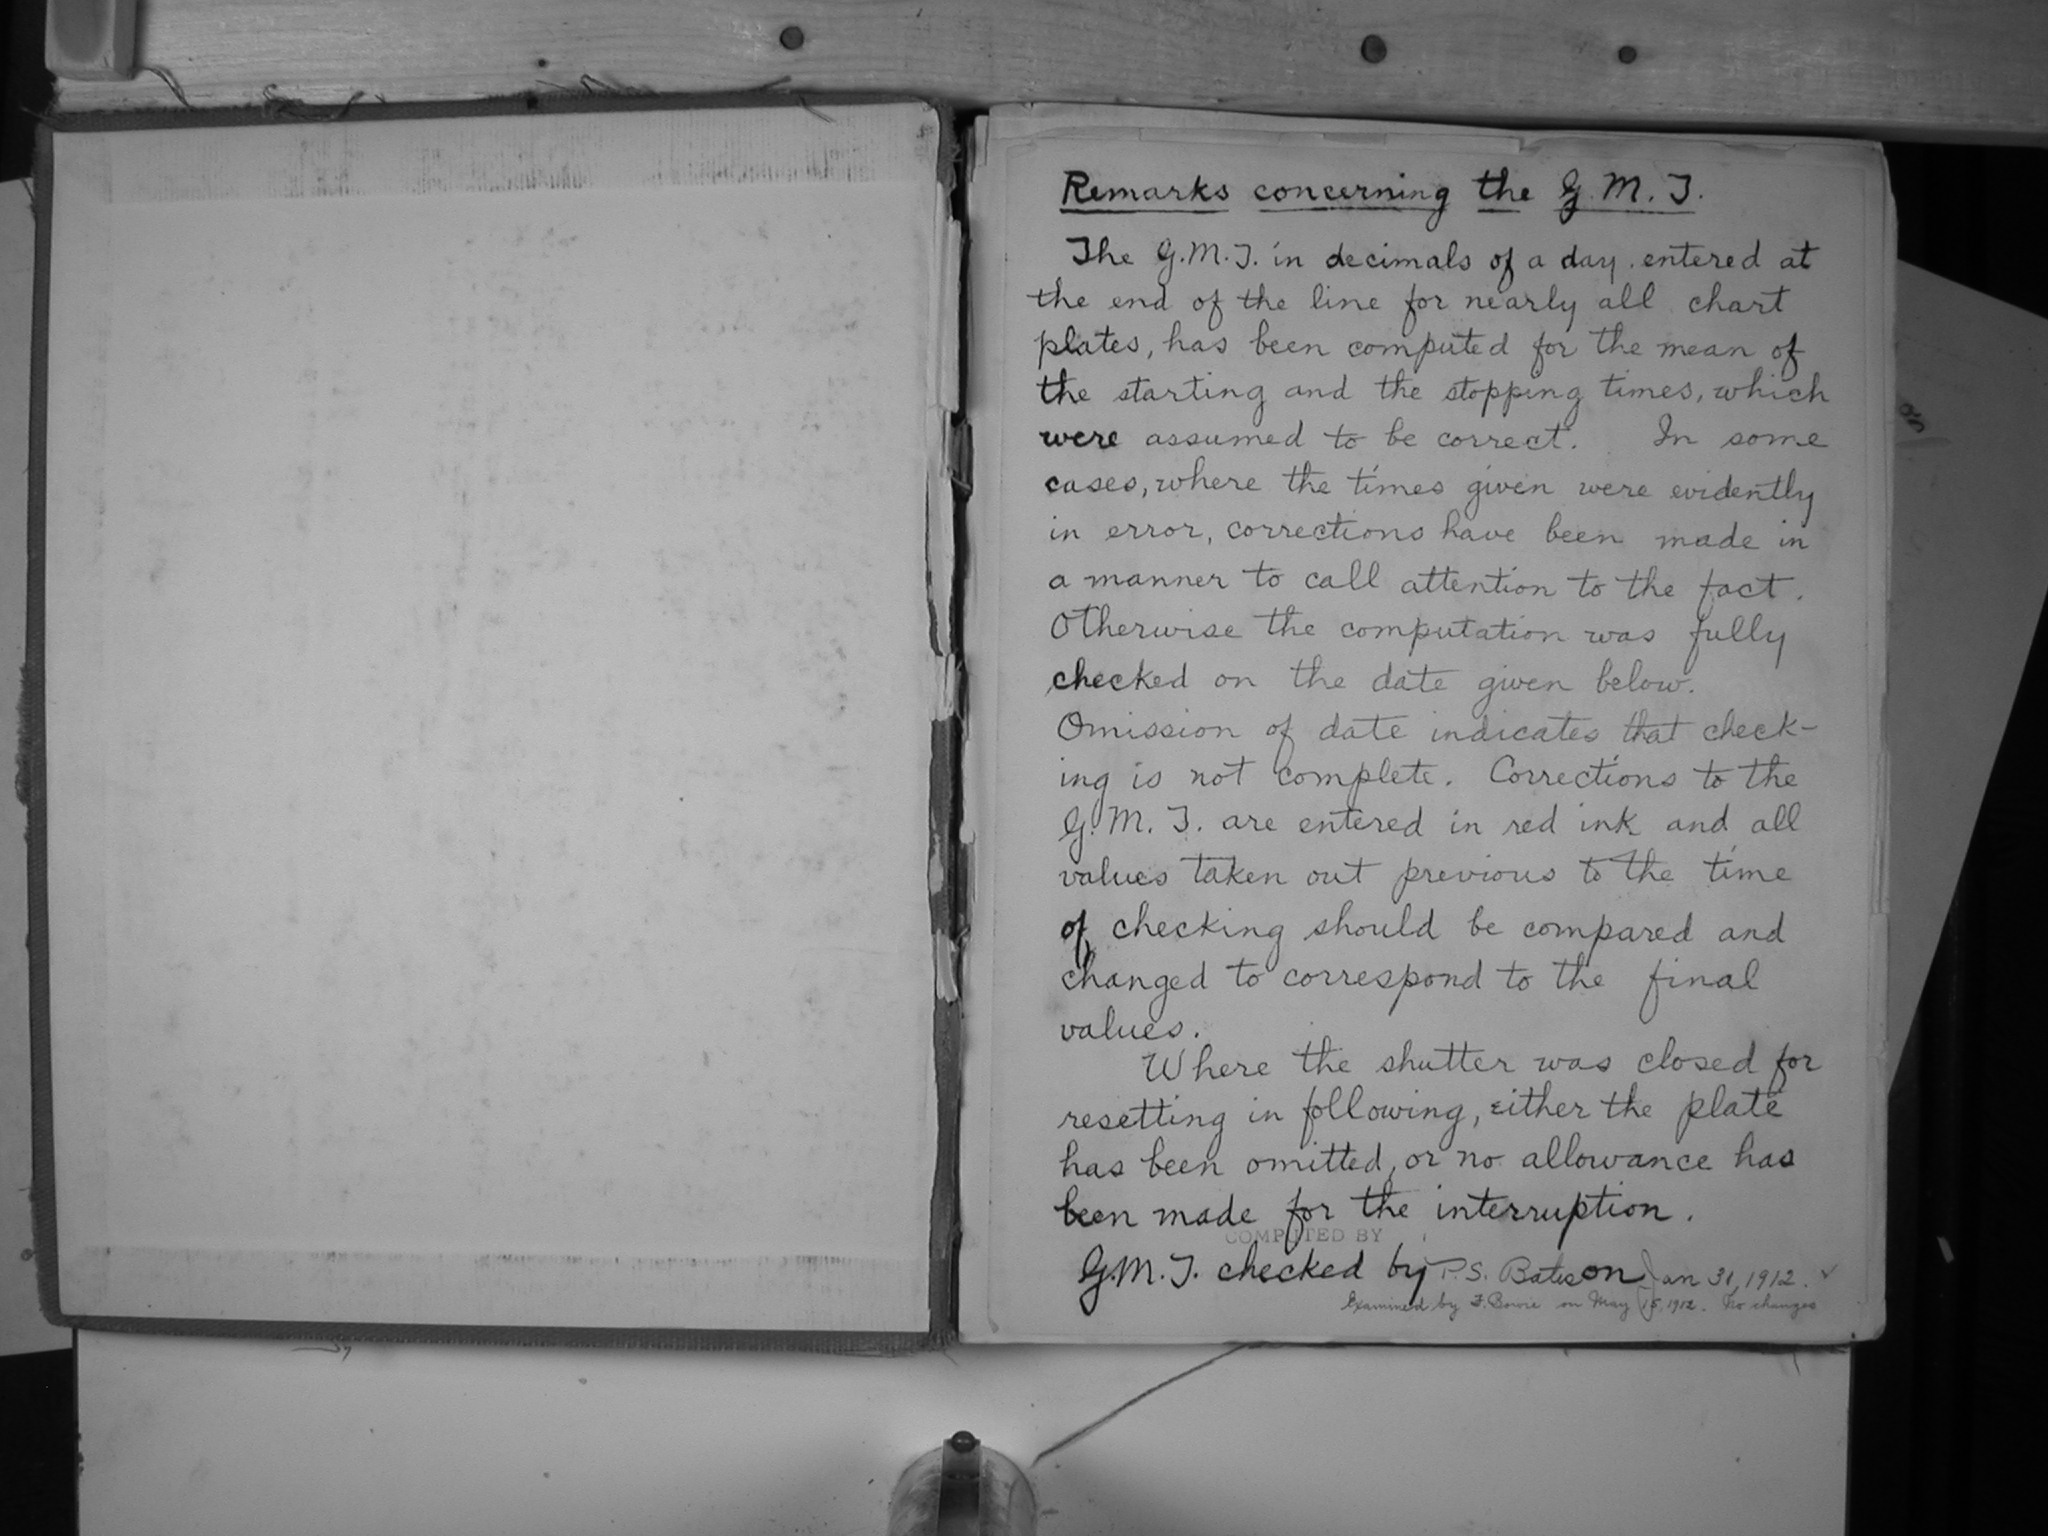 Remarks concerning the G.M.T.
The G.M.T. in decimals of a day, entered at
the end of the line for nearly all chart
plates, has been computed for the mean of
the starting and the stopping times, which
were assumed to be correct. In some
cases, where the times given were evidently
in error, corrections have been made in
a manner to call attention to the fact.
Otherwise the computation was fully
checked on the date given below.
Omission of date indicates that check-
ing is not complete. Corrections to the
G.M.T. are entered in red ink and all
values taken out previous to the time
of checking should be compared and
changed to correspond to the final
values.
Where the shutter was closed for
resetting in following, either the plate
has been omitted, or no allowance has
been made for the interruption.
COMPUTED BY
G.M.T. checked by P.S. Bates on Jan 31, 1912. ✓
Examined by F. Bowie on May 15, 1912. No changes